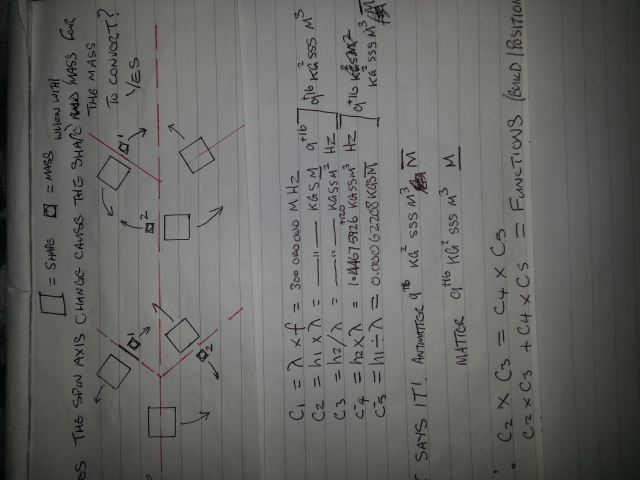 □ = SHAPE ⊡ = MASS
WHEN WITH
THE SPIN AXIS CHANGE CAUSE THE SHAPE MASS FOR
THE MASS
TO CONVERT?
YES
1
2
1
2
C1 = λ × f = 300 000 000 M HZ
C2 = h1 × λ = —"— KGSM
C3 = h2/λ = —"— KGSSM² HZ
C4 = h2×λ = KGSSM³ HZ
C5 = h1÷λ = 0.00062208 KGSM
q+16 q+16 KG² SSS M³
KG² SSS M³ M
SAYS IT! ANTIMATTER q+16 KG² SSS M³ M
MATTER q+16 KG² SSS M³ M
C2 × C3 = C4 × C5
C2 × C3 + C4 × C5 = FUNCTIONS (BUILD/POSITION